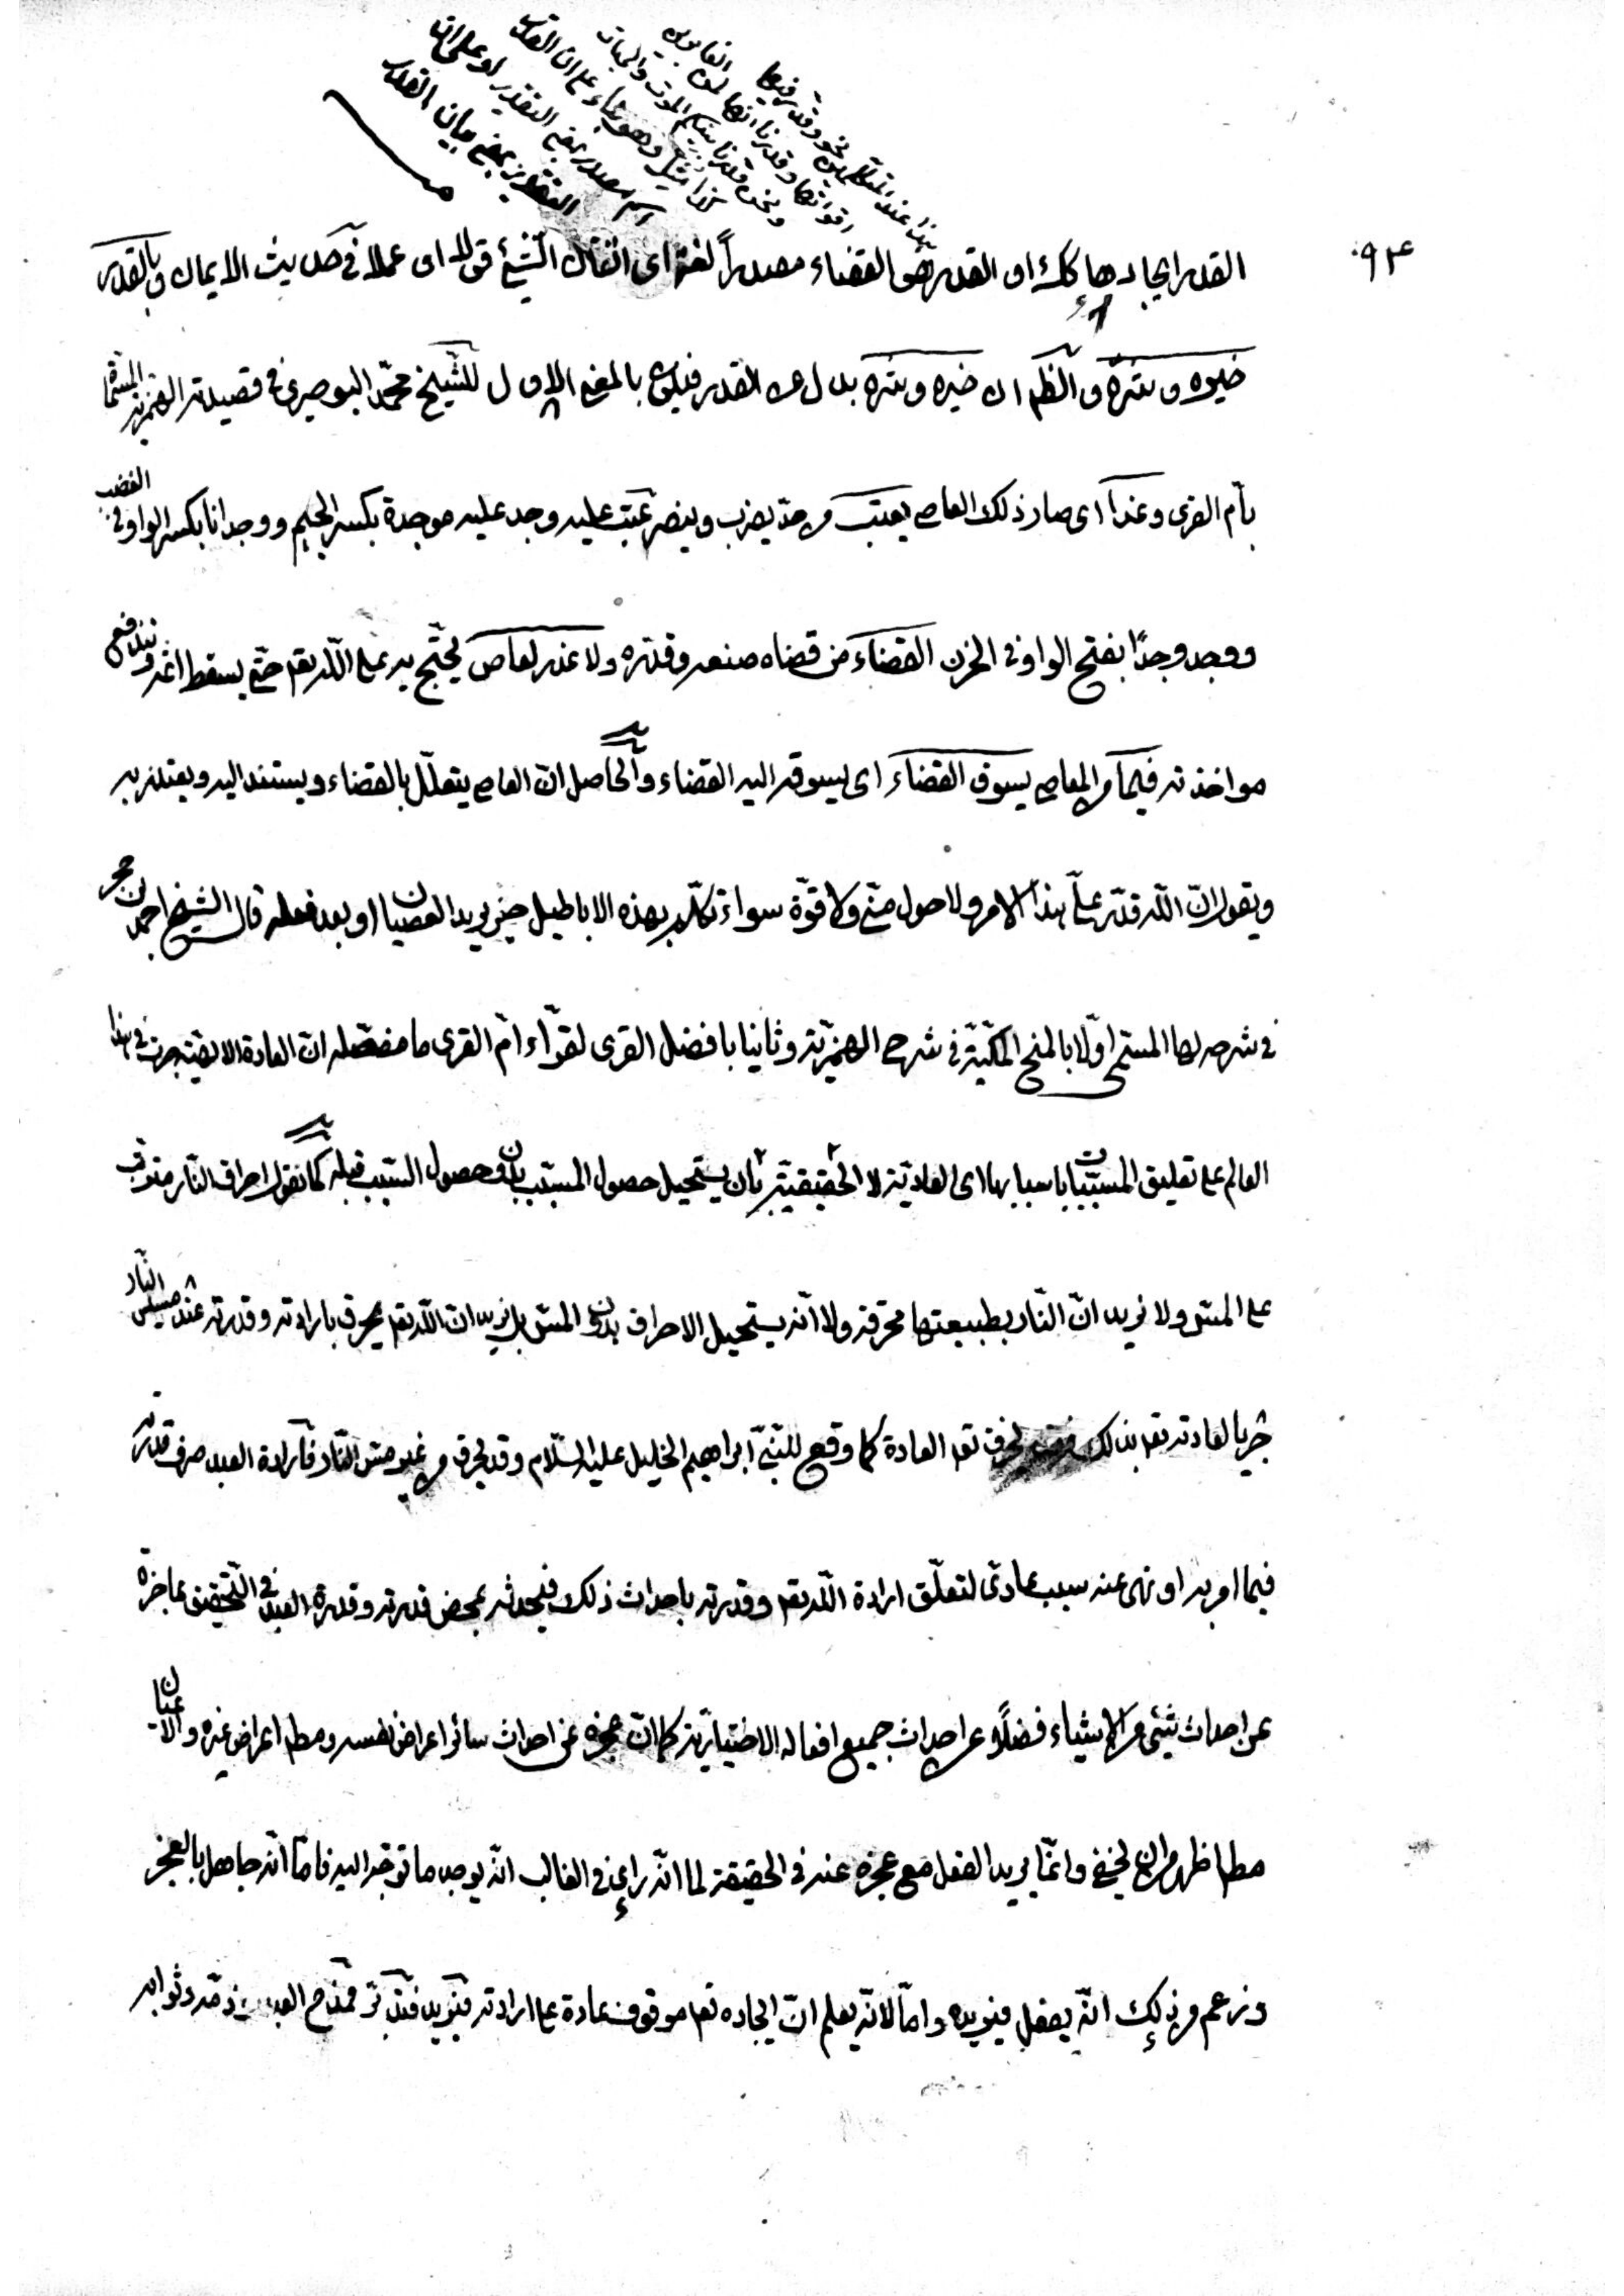 هذا عند المتكلمين نحو وقدر فيها
اقواتها وقدرنا انها لمن الغابرين
ونحن قدرنا بينكم الموت والحيات
كذا مثل وهو بناء على ان القدر
اسم مصدر بمعنى التقدير او على ان
التقدير بمعنى بيان القدر
٩٣٠
القدر ايجادها كك او القدر هو القضاء مصدراً لغة اى اتقان الشئ قولا اى عملا فى حديث الايمان وبالقدر
خيره وشره والظم ان خيره وشره بدل من القدر فيكون بالمعنى الاول للشيخ محمد البوصيرى فى قصيدته الهمزية المسماة
بأم القرى وغدا اى صار ذلك العاصى يعتب من حد يضرب وينصر عتب عليه وجد عليه موجدة بكسر الجيم ووجدانا بكسر الواو فى الغضب
ووجد وجدًا بفتح الواو فى الحزن القضاء من قضاه صنعه وقدره ولا عذر لعاص يحتج به على الله تعم حتى يسقط اثمه وتندفع
مواخذته فيما من المعاصى يسوق القضاء اى يسوقه اليه القضاء والحاصل ان العاصى يتعلل بالقضاء ويستند اليه ويعتذر به
ويقول ان الله قدر على هذا الامر ولا حول منى ولا قوة سواء تكلم بهذه الاباطيل حين يريد العصيان او بعد فعله قال الشيخ احمد بن حجر
فى شرحه لها المسمى اولا بالمنح المكية فى شرح الهمزية وثانيا بافضل القرى لقراء ام القرى ما مفصله ان العادة الالهية جرت فى هذا
العالم على تعليق المسببات باسبابها اى العادية لا الحقيقية بأن يستحيل حصول المسبب بدون حصول السبب قبله كما نقول احراق النار متوقف
على المس ولا نريد ان النار بطبيعتها محرقة ولا انه يستحيل الاحراق بدون المس بل نريد ان الله تعم يحرق بارادته وقدرته عند مسيس النار
جريا لعادته تعم بذلك يخرق تعم العادة كما وقع للنبى ابراهيم الخليل عليه السلام وقد يحرق من غير مس النار فارادة العبد صرف قدرته
فيما امر به او نهى عنه سبب عادى لتعلق ارادة الله تعم وقدرته باحداث ذلك فيحدثه بمحض قدرته وقدرة العبد فى التحقيق عاجزة
عن احداث شئ من الاشياء فضلا عن احداث جميع افعاله الاختيارية كما ان عجزه عن احداث سائر اعراض نفسه ومطم اعراض غيره والاعيان
مطم ظهر من ان يخفى وانما يريد الفعل مع عجزه عنه فى الحقيقة لما انه راى فى الغالب انه يوجد ما توجه اليه فاما انه جاهل بالعجز
وزعم من ذلك انه يفعل فيريده واما لانه يعلم ان ايجاده تعم موقوف عادة على ارادته فيريد فتدبر فمدح العبد وذمه وثوابه